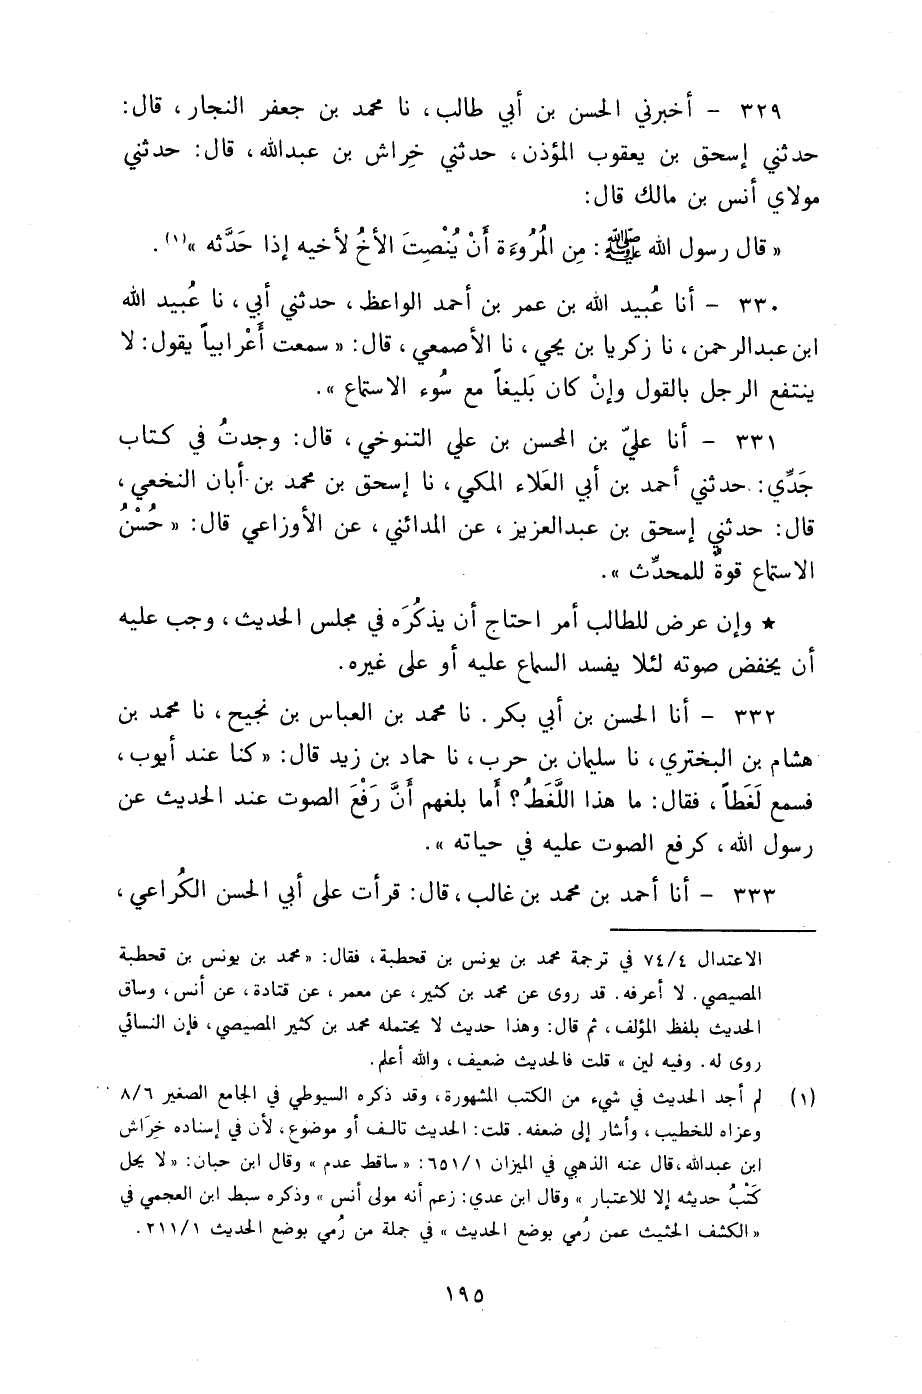 ٣٢٩ - أخبرني الحسن بن أبي طالب، نا محمد بن جعفر النجار، قال:
حدثني إسحق بن يعقوب المؤذن، حدثني خِراش بن عبدالله، قال: حدثني
مولاي أنس بن مالك قال:
« قال رسول الله ﷺ: مِن المُرُوءَة أَنْ يُنْصِتَ الأخُ لأخيه إذا حَدَّثه »(١).
٣٣٠ - أنا عُبيد الله بن عمر بن أحمد الواعظ، حدثني أبي، نا عُبيد الله
ابن عبدالرحمن، نا زكريا بن يحي، نا الأصمعي، قال: « سمعت أَعْرابياً يقول: لا
ينتفع الرجل بالقول وإنْ كان بَليغاً مع سُوء الاستماع ».
٣٣١ - أنا عليّ بن المحسن بن علي التنوخي، قال: وجدتُ في كتاب
جَدِّي: حدثني أحمد بن أبي العَلاء المكي، نا إسحق بن محمد بن أبان النخعي،
قال: حدثني إسحق بن عبدالعزيز، عن المدائني، عن الأوزاعي قال: « حُسْنُ
الاستماع قوةٌ للمحدِّث ».
★ وإن عرض للطالب أمر احتاج أن يذكُرَه في مجلس الحديث، وجب عليه
أن يخفض صوته لئلا يفسد السماع عليه أو على غيره.
٣٣٢ - أنا الحسن بن أبي بكر. نا محمد بن العباس بن نجيح، نا محمد بن
هشام بن البختري، نا سليمان بن حرب، نا حماد بن زيد قال: « كنا عند أيوب،
فسمع لَغَطاً، فقال: ما هذا اللَّغَطُ؟ أَما بلغهم أَنَّ رَفْعَ الصوت عند الحديث عن
رسول الله، كرفع الصوت عليه في حياته ».
٣٣٣ - أنا أحمد بن محمد بن غالب، قال: قرأت على أبي الحسن الكُراعي،
الاعتدال ٧٤/٤ في ترجمة محمد بن يونس بن قحطبة، فقال: « محمد بن يونس بن قحطبة
المصيصي. لا أعرفه. قد روى عن محمد بن كثير، عن معمر، عن قتادة، عن أنس، وساق
الحديث بلفظ المؤلف، ثم قال: وهذا حديث لا يحتمله محمد بن كثير المصيصي، فإن النسائي
روى له. وفيه لين » قلت فالحديث ضعيف، والله أعلم.
(١) لم أجد الحديث في شيء من الكتب المشهورة، وقد ذكره السيوطي في الجامع الصغير ٨/٦
وعزاه للخطيب، وأشار إلى ضعفه. قلت: الحديث تالف أو موضوع، لأن في إسناده خِرَاش
ابن عبدالله، قال عنه الذهبي في الميزان ٦٥١/١: « ساقط عدم » وقال ابن حبان: « لا يحل
كَتْبُ حديثه إلا للاعتبار » وقال ابن عدي: زعم أنه مولى أنس » وذكره سبط ابن العجمي في
« الكشف الحثيث عمن رُمي بوضع الحديث » في جملة من رُمي بوضع الحديث ٢١١/١.
١٩٥